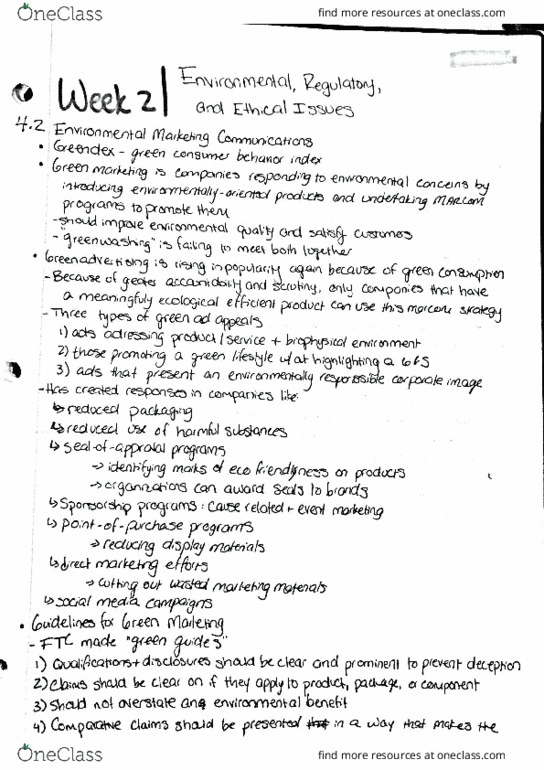 OneClass
find more resources at oneclass.com
Week 2 | Environmental, Regulatory,
and Ethical Issues
4.2 Environmental Marketing Communications
• Greendex - green consumer behavior index
• Green marketing is companies responding to environmental concerns by
introducing environmentally-oriented products and undertaking MARCOM
programs to promote them
- should improve environmental quality and satisfy customers
- "greenwashing" is failing to meet both together
• Green advertising is rising in popularity again because of green consumption
- Because of greater accountability and scrutiny, only companies that have
a meaningfuly ecological efficient product can use this marcom strategy
- Three types of green ad appeals
1) ads adressing product/service + biophysical environment
2) those promoting a green lifestyle w/out highlighting a G&S
3) ads that present an environmentally responsible corporate image
- Has created responses in companies like:
↳ reduced packaging
↳ reduced use of harmful substances
↳ seal-of-approval programs
→ identifying marks of eco friendlyness on products
→ organizations can award seals to brands
↳ Sponsorship programs: cause related + event marketing
↳ point-of-purchase programs
→ reducing display materials
↳ direct marketing efforts
→ cutting out wasted marketing materials
↳ social media campaigns
• Guidelines for Green Marketing
- FTC made "green guides"
1) Qualifications + disclosures should be clear and prominent to prevent deception
2) Claims should be clear on if they apply to product, package, or component
3) Should not overstate an environmental benefit
4) Comparative claims should be presented in a way that makes the
OneClass
find more resources at oneclass.com